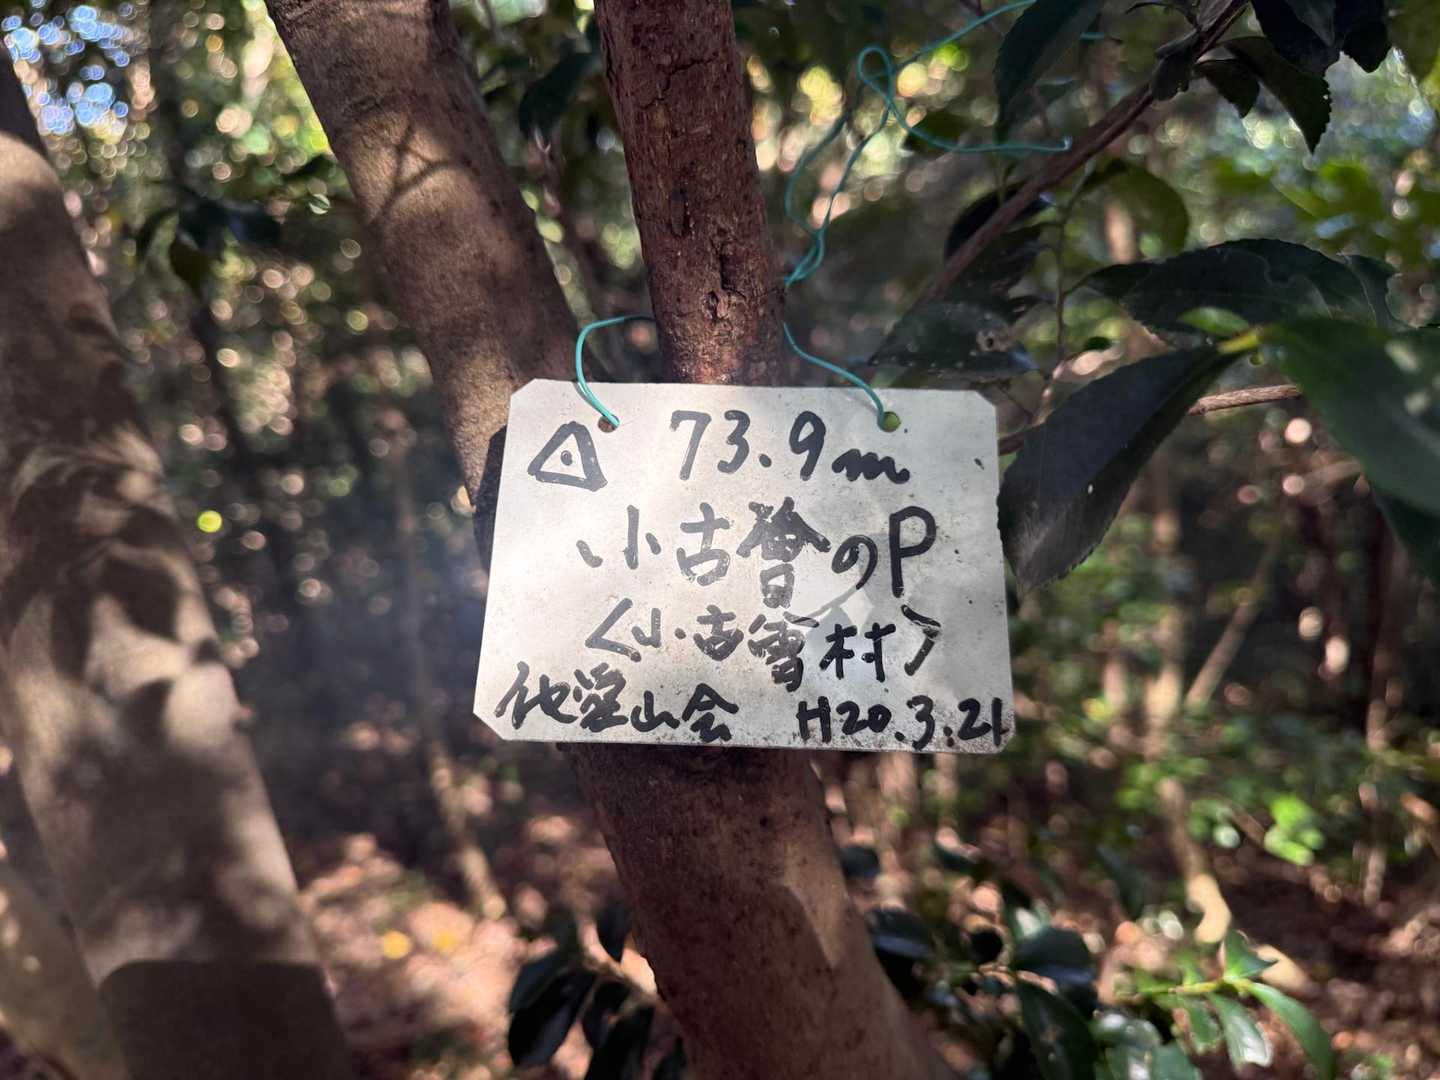 △ 73.9m
小古曾のP
<小古曾村>
他愛山会 H20.3.21